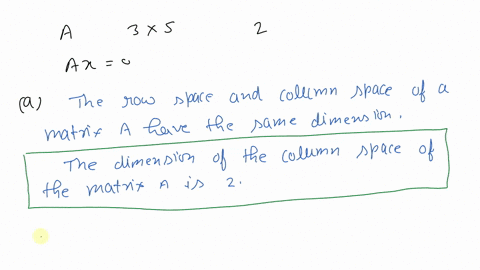 A 3×5 2
Ax = 0
(a) The row space and column space of a
matrix A have the same dimension.
The dimension of the column space of
the matrix A is 2.